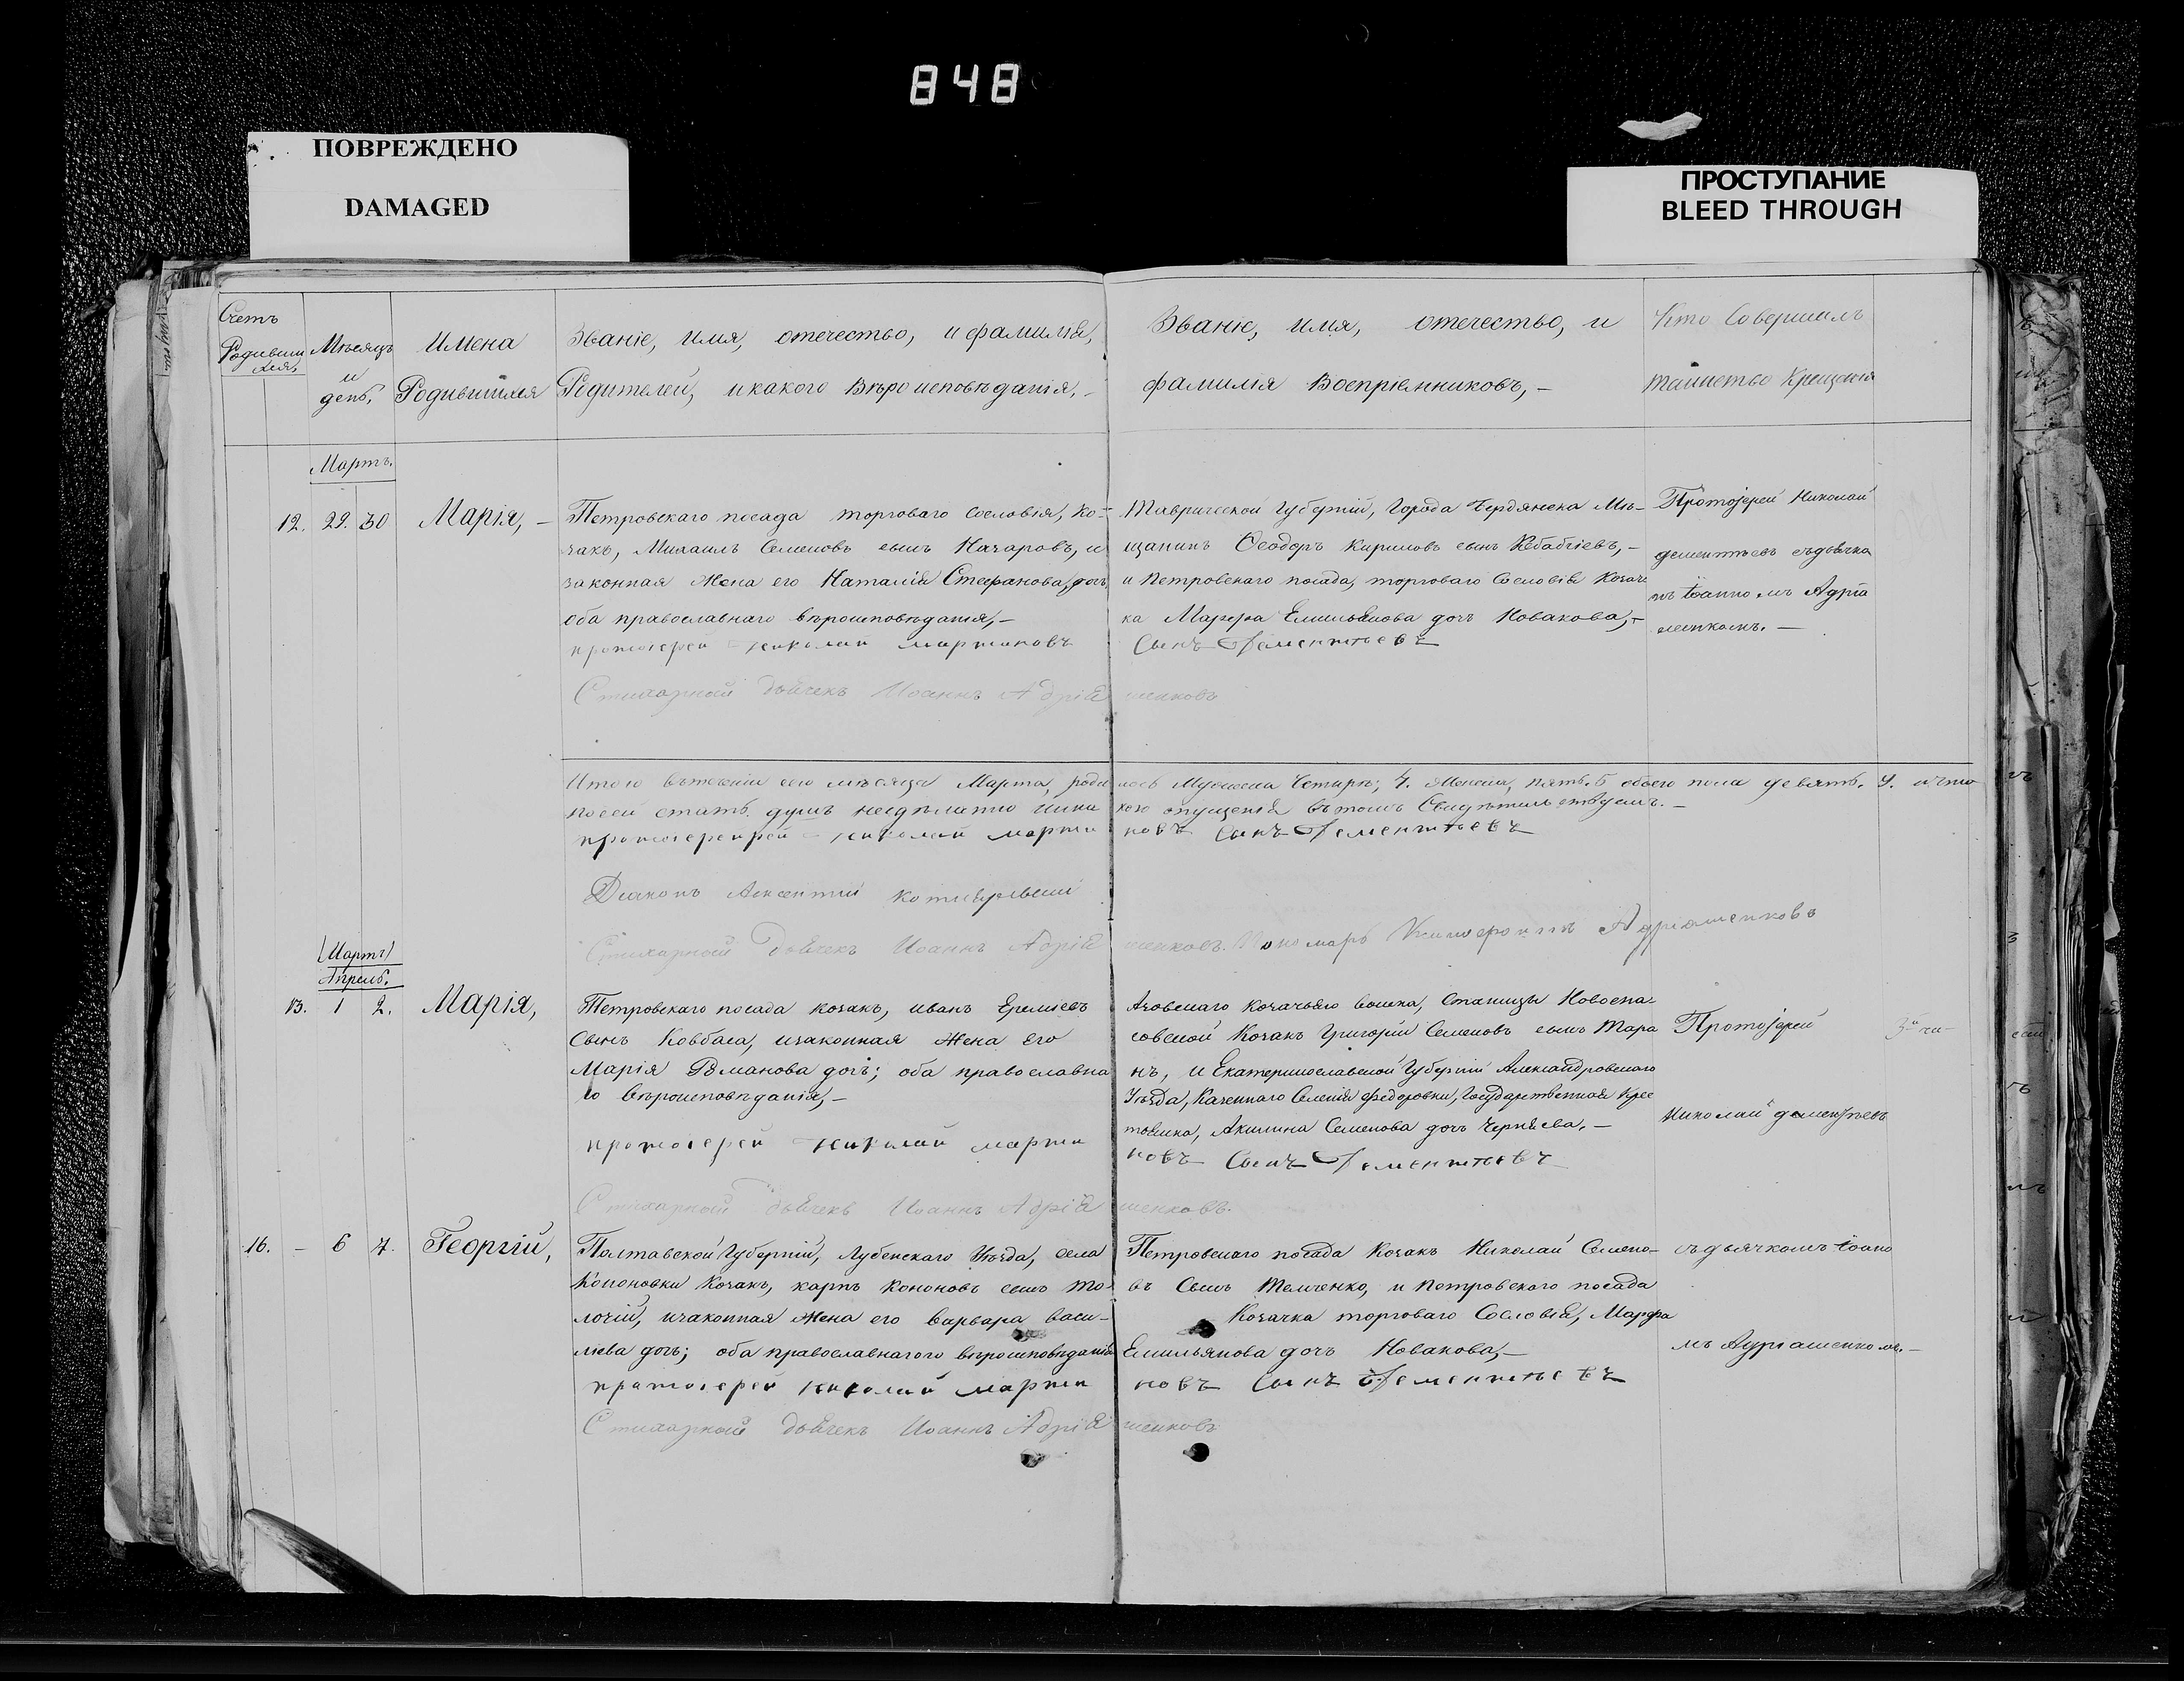 848
ПОВРЕЖДЕНО
DAMAGED
ПРОСТУПАНИЕ
BLEED THROUGH
Счетъ
Родивши
Мѣсяцъ
и
день,
Имена
Родившихся
Званіе, имя, отечество, и фамилія,
Родителей, и какого вѣроисповѣданія, -
Званіе, имя, отечество, и
фамилія воспріемниковъ, -
Кто совершалъ
таинство крещенія
Мартъ.
12. 29. 30 Марія, -
Петровскаго посада торговаго сословія, ко-
закъ, Михаилъ Семеновъ сынъ Назаровъ, и
законная жена его Наталія Стефанова, дочь
оба православнаго вѣроисповѣданія, -
протоіерей николай мартиновъ
Стихарной дьячекъ Иоаннъ Адрія
Таврической губерніи, города Бердянска мѣ-
щанинъ Ѳеодоръ Кириловъ сынъ
и Петровскаго посада, торговаго сословія козач
ка Марфа Емильянова дочь Новакова, -
сынъ Дементьевъ
шенковъ
Протоіерей Николай
дементьевъ съ дьячко
мъ Іоанномъ Адрія
шенкомъ. -
Итого въ теченіи сего мѣсяца Марта, роди
протоіерейрей николай марти
Діаконъ Аксентій
Стихарной дьячекъ Иоаннъ Адрія
лось Мужеска четыре; 4. Женска, пять. 5 обоего пола девять. 9. и что
кого опущенія въ томъ свидѣтельствуемъ. -
новъ сынъ Дементьевъ
шенковъ. Пономарь Адріашенковъ
(Мартъ)
Апрель.
13. 1 2. Марія,
Петровскаго посада козакъ, иванъ Еремѣевъ
сынъ Ковбаса, и законная жена его
Марія Романова дочь; оба православна
го вѣроисповѣданія, -
протоіерей николай марти
Стихарной дьячекъ Иоаннъ Адрія
Азовскаго козачьяго войска, станицы Новоспа-
совской козакъ Григорій Семеновъ сынъ Тара
нъ, и Екатеринославской губерніи Александровскаго
Уѣзда, Казеннаго селенія федоровки, государственная крес
тьянка, Акилина Семенова дочь Черняева. -
новъ сынъ Дементьевъ
шенковъ.
Протоіерей
Николай дементьевъ
16. - 6 7. Георгій,
Полтавской губерніи, Лубенскаго Уѣзда, села
Кононовки козакъ, карпъ кононовъ сынъ То-
лочій, и законная жена его варвара васи-
лієва дочь; оба православнагого вѣроисповѣданія
протоіерей николай марти
Стихарной дьячекъ Иоаннъ Адрія
Петровскаго посада козакъ Николай Семено-
въ сынъ Темченко, и Петровского посада
козачка торговаго сословія, Марфа
Емильянова дочь Новакова, -
новъ сынъ Дементьевъ
шенковъ
съ дьячкомъ Іоанно
мъ Адріашенкомъ. -